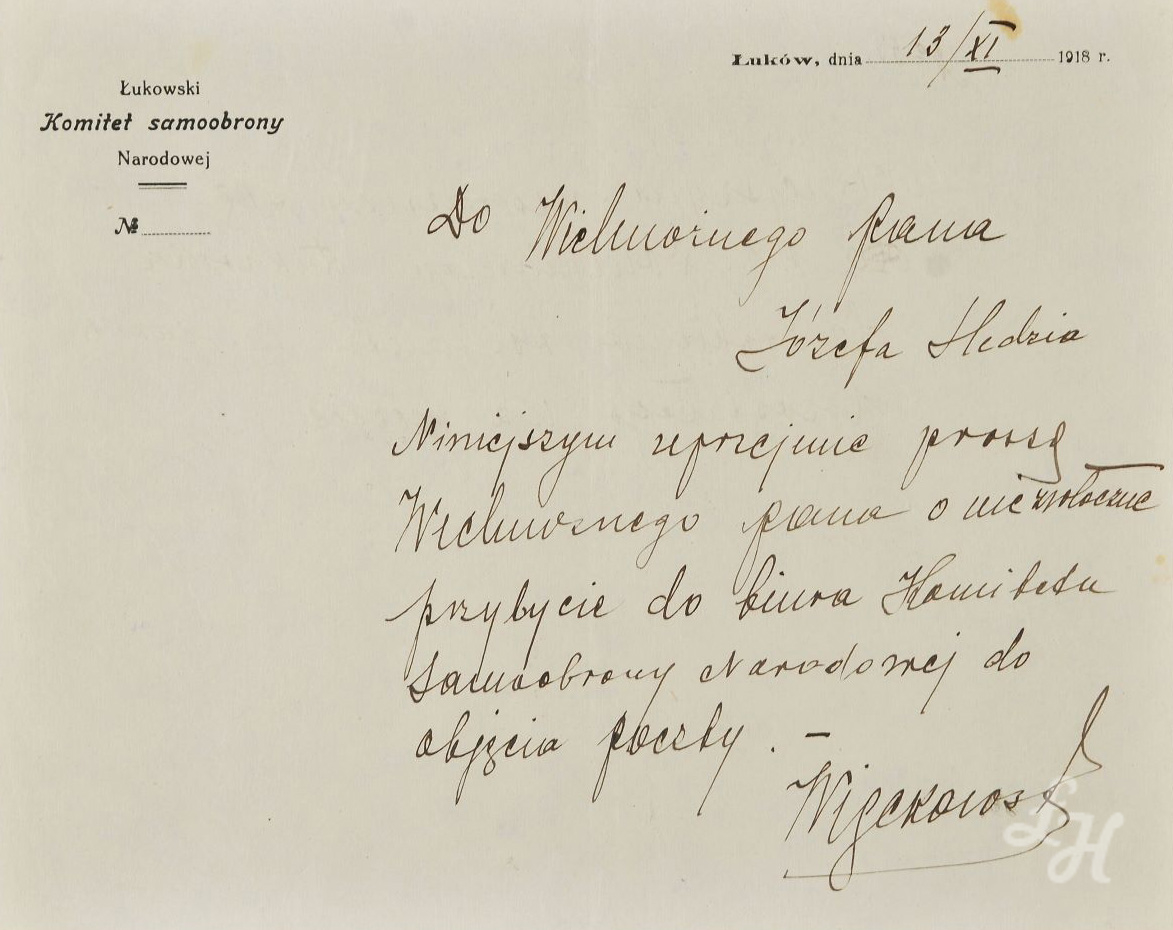 Łuków, dnia 13/XI 1918 r.
Łukowski
Komitet samoobrony
Narodowej
№
Do Wielmożnego Pana
Józefa Śledzia
Niniejszym uprzejmie proszę
Wielmożnego Pana o niezwłoczne
przybycie do biura Komitetu
Samoobrony Narodowej do
objęcia poczty. –
ŁH